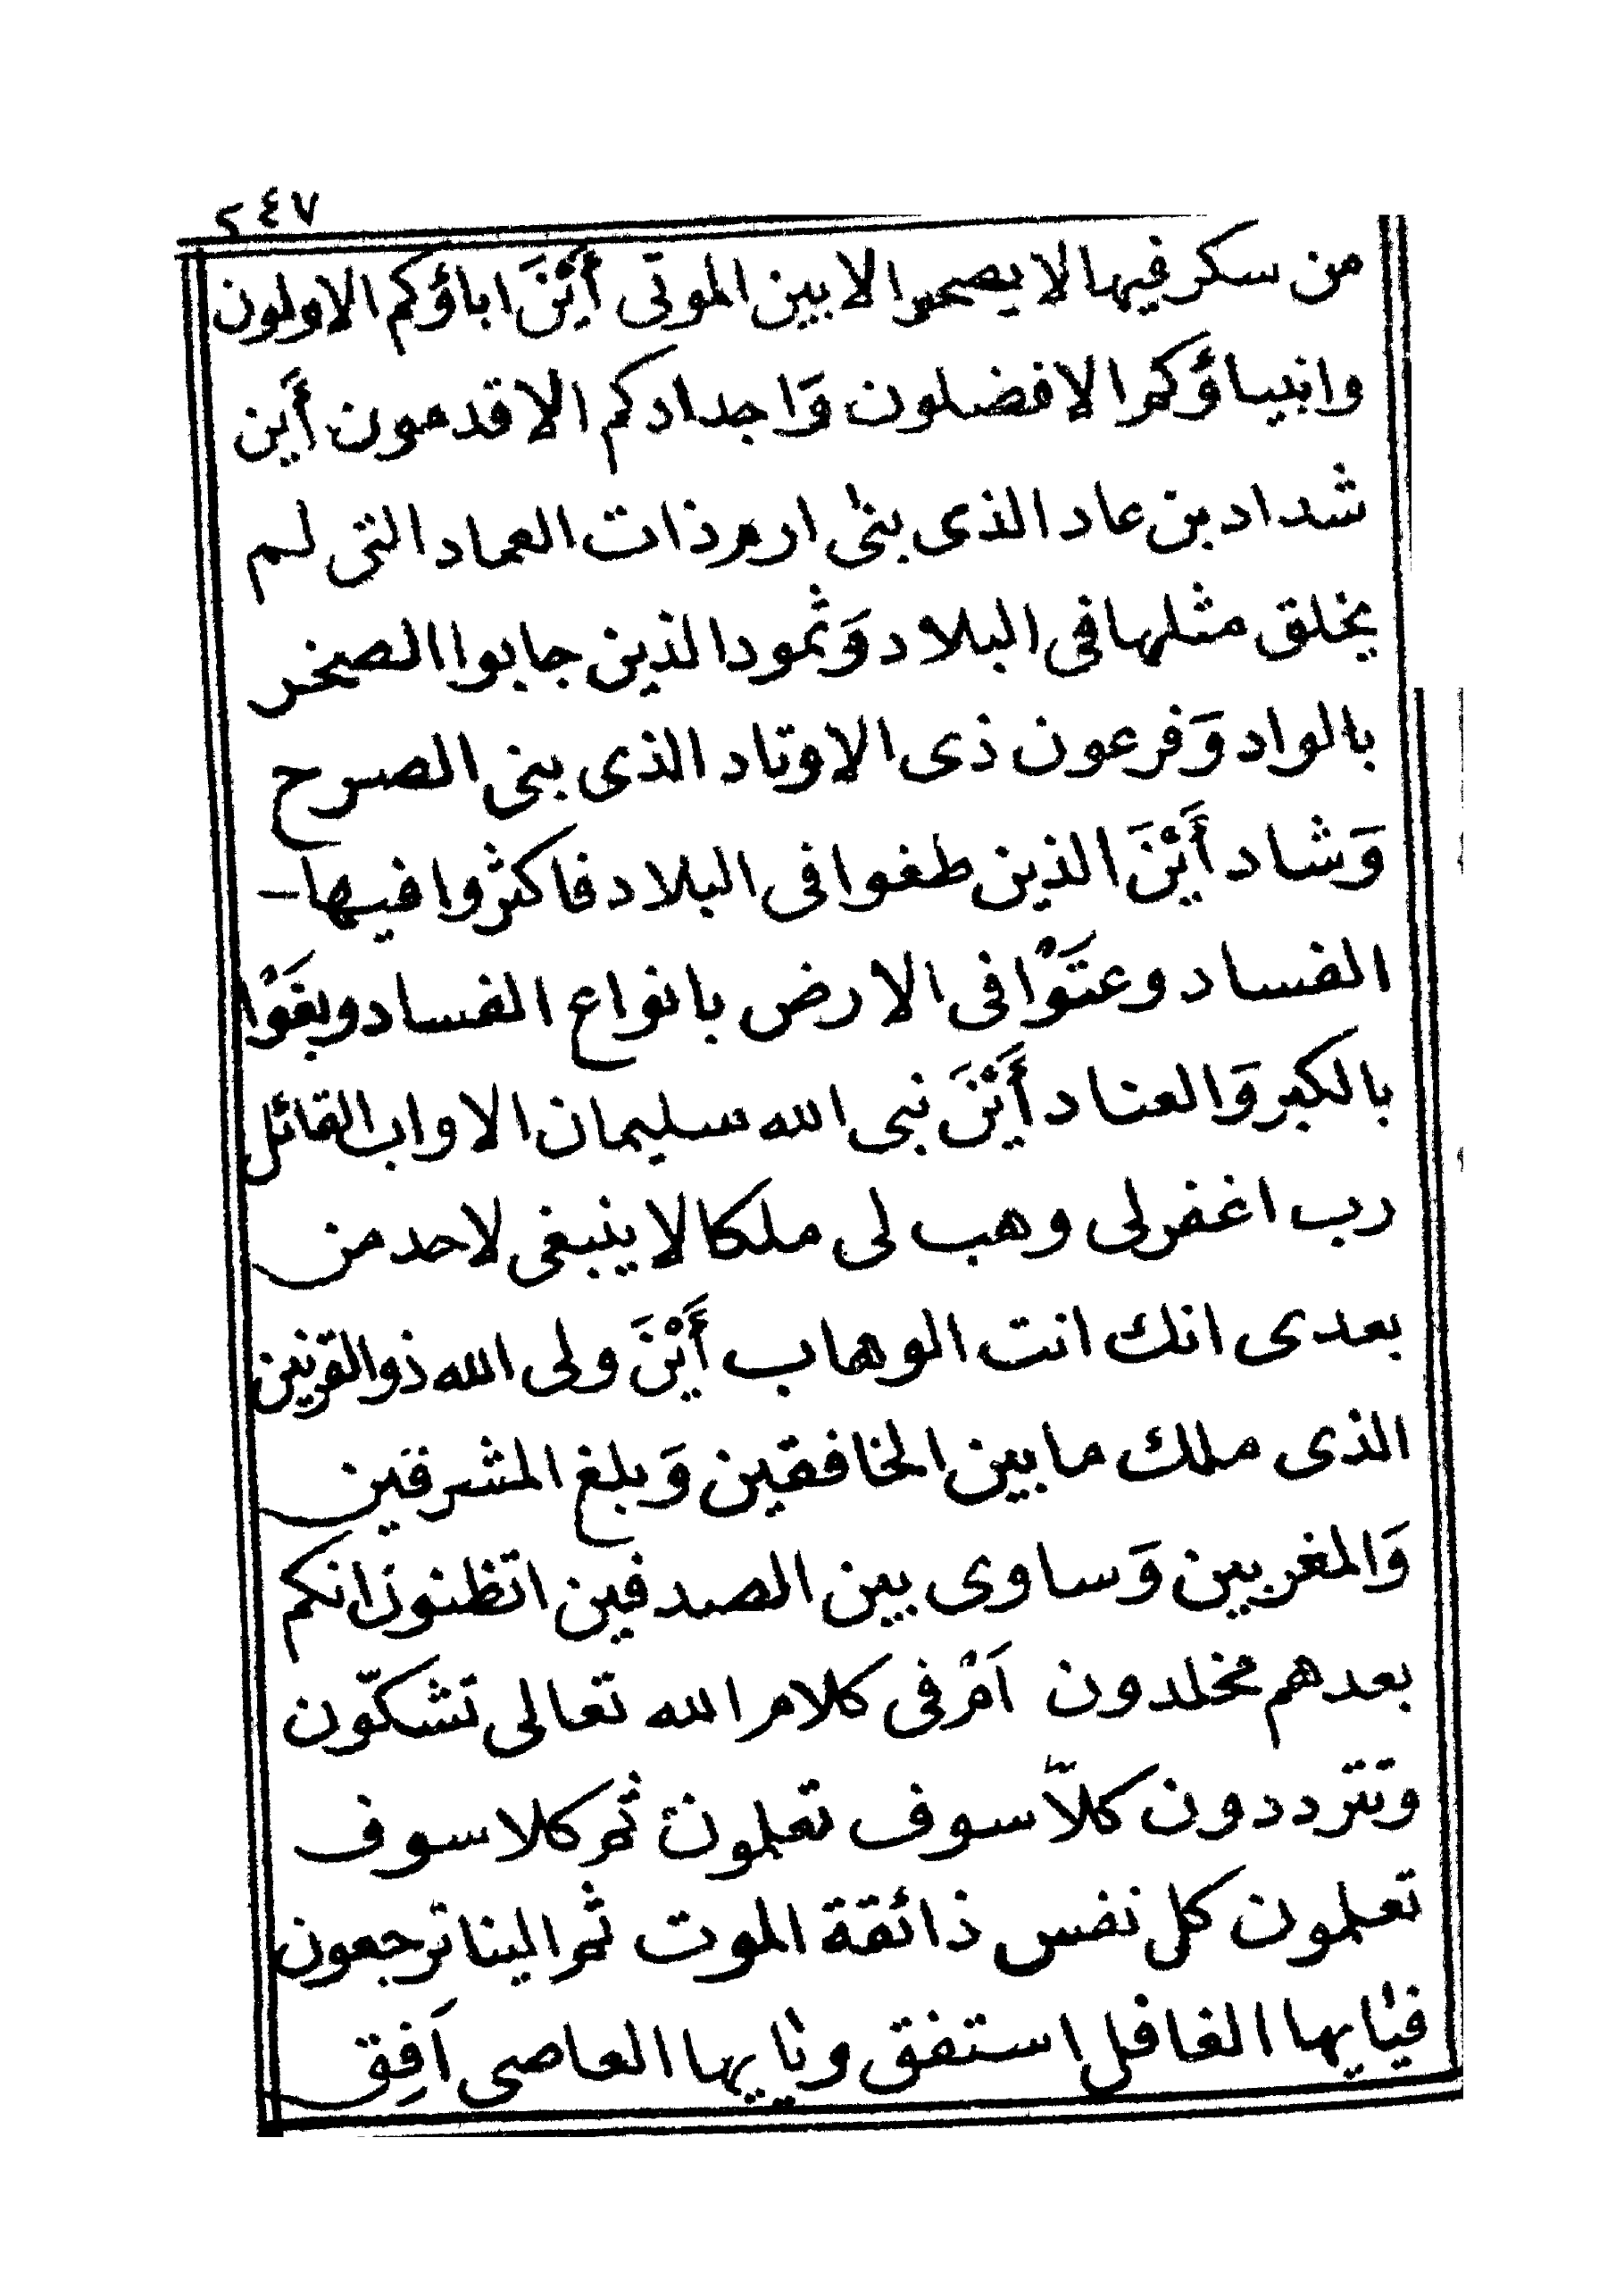 ٢٤٧
من سكر فيها لا يصحوا لا بين الموتى أَيْنَ اباؤكم الاولون
وانبياؤكم الافضلون وَاجدادكم الاقدمون أَين
شداد بن عاد الذى بنى ارم ذات العماد التى لم
يخلق مثلها فى البلاد وَثمود الذين جابوا الصخر
بالواد وَفرعون ذى الاوتاد الذى بنى الصرح
وَشاد أَيْنَ الذين طغوا فى البلاد فاكثروا فيها-
الفساد وعتَوْا فى الارض بانواع الفساد وبغَوْا
بالكبر وَالعناد أَيْنَ نبى الله سليمان الاواب القائل
رب اغفر لى وهب لى ملكا لا ينبغى لاحد من
بعدى انك انت الوهاب أَيْنَ ولى الله ذو القرنين
الذى ملك ما بين الخافقين وَبلغ المشرقين
وَالمغربين وَساوى بين الصدفين اتظنون انكم
بعدهم مخلدون اَمْ فى كلام الله تعالى تشكّون
وتترددون كلاّ سوف تعلمون ثم كلا سوف
تعلمون كل نفس ذائقة الموت ثم الينا ترجعون
فيايها الغافل استفق ويايها العاصى اَفِق